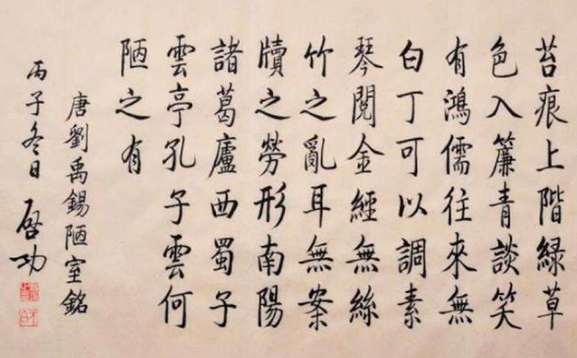 苔痕上階緑草
色入簾青談笑
有鴻儒往來無
白丁可以調素
琴閱金經無絲
竹之亂耳無案
牘之勞形南陽
諸葛廬西蜀子
雲亭孔子雲何
陋之有
唐劉禹錫陋室銘
丙子冬日 啓功